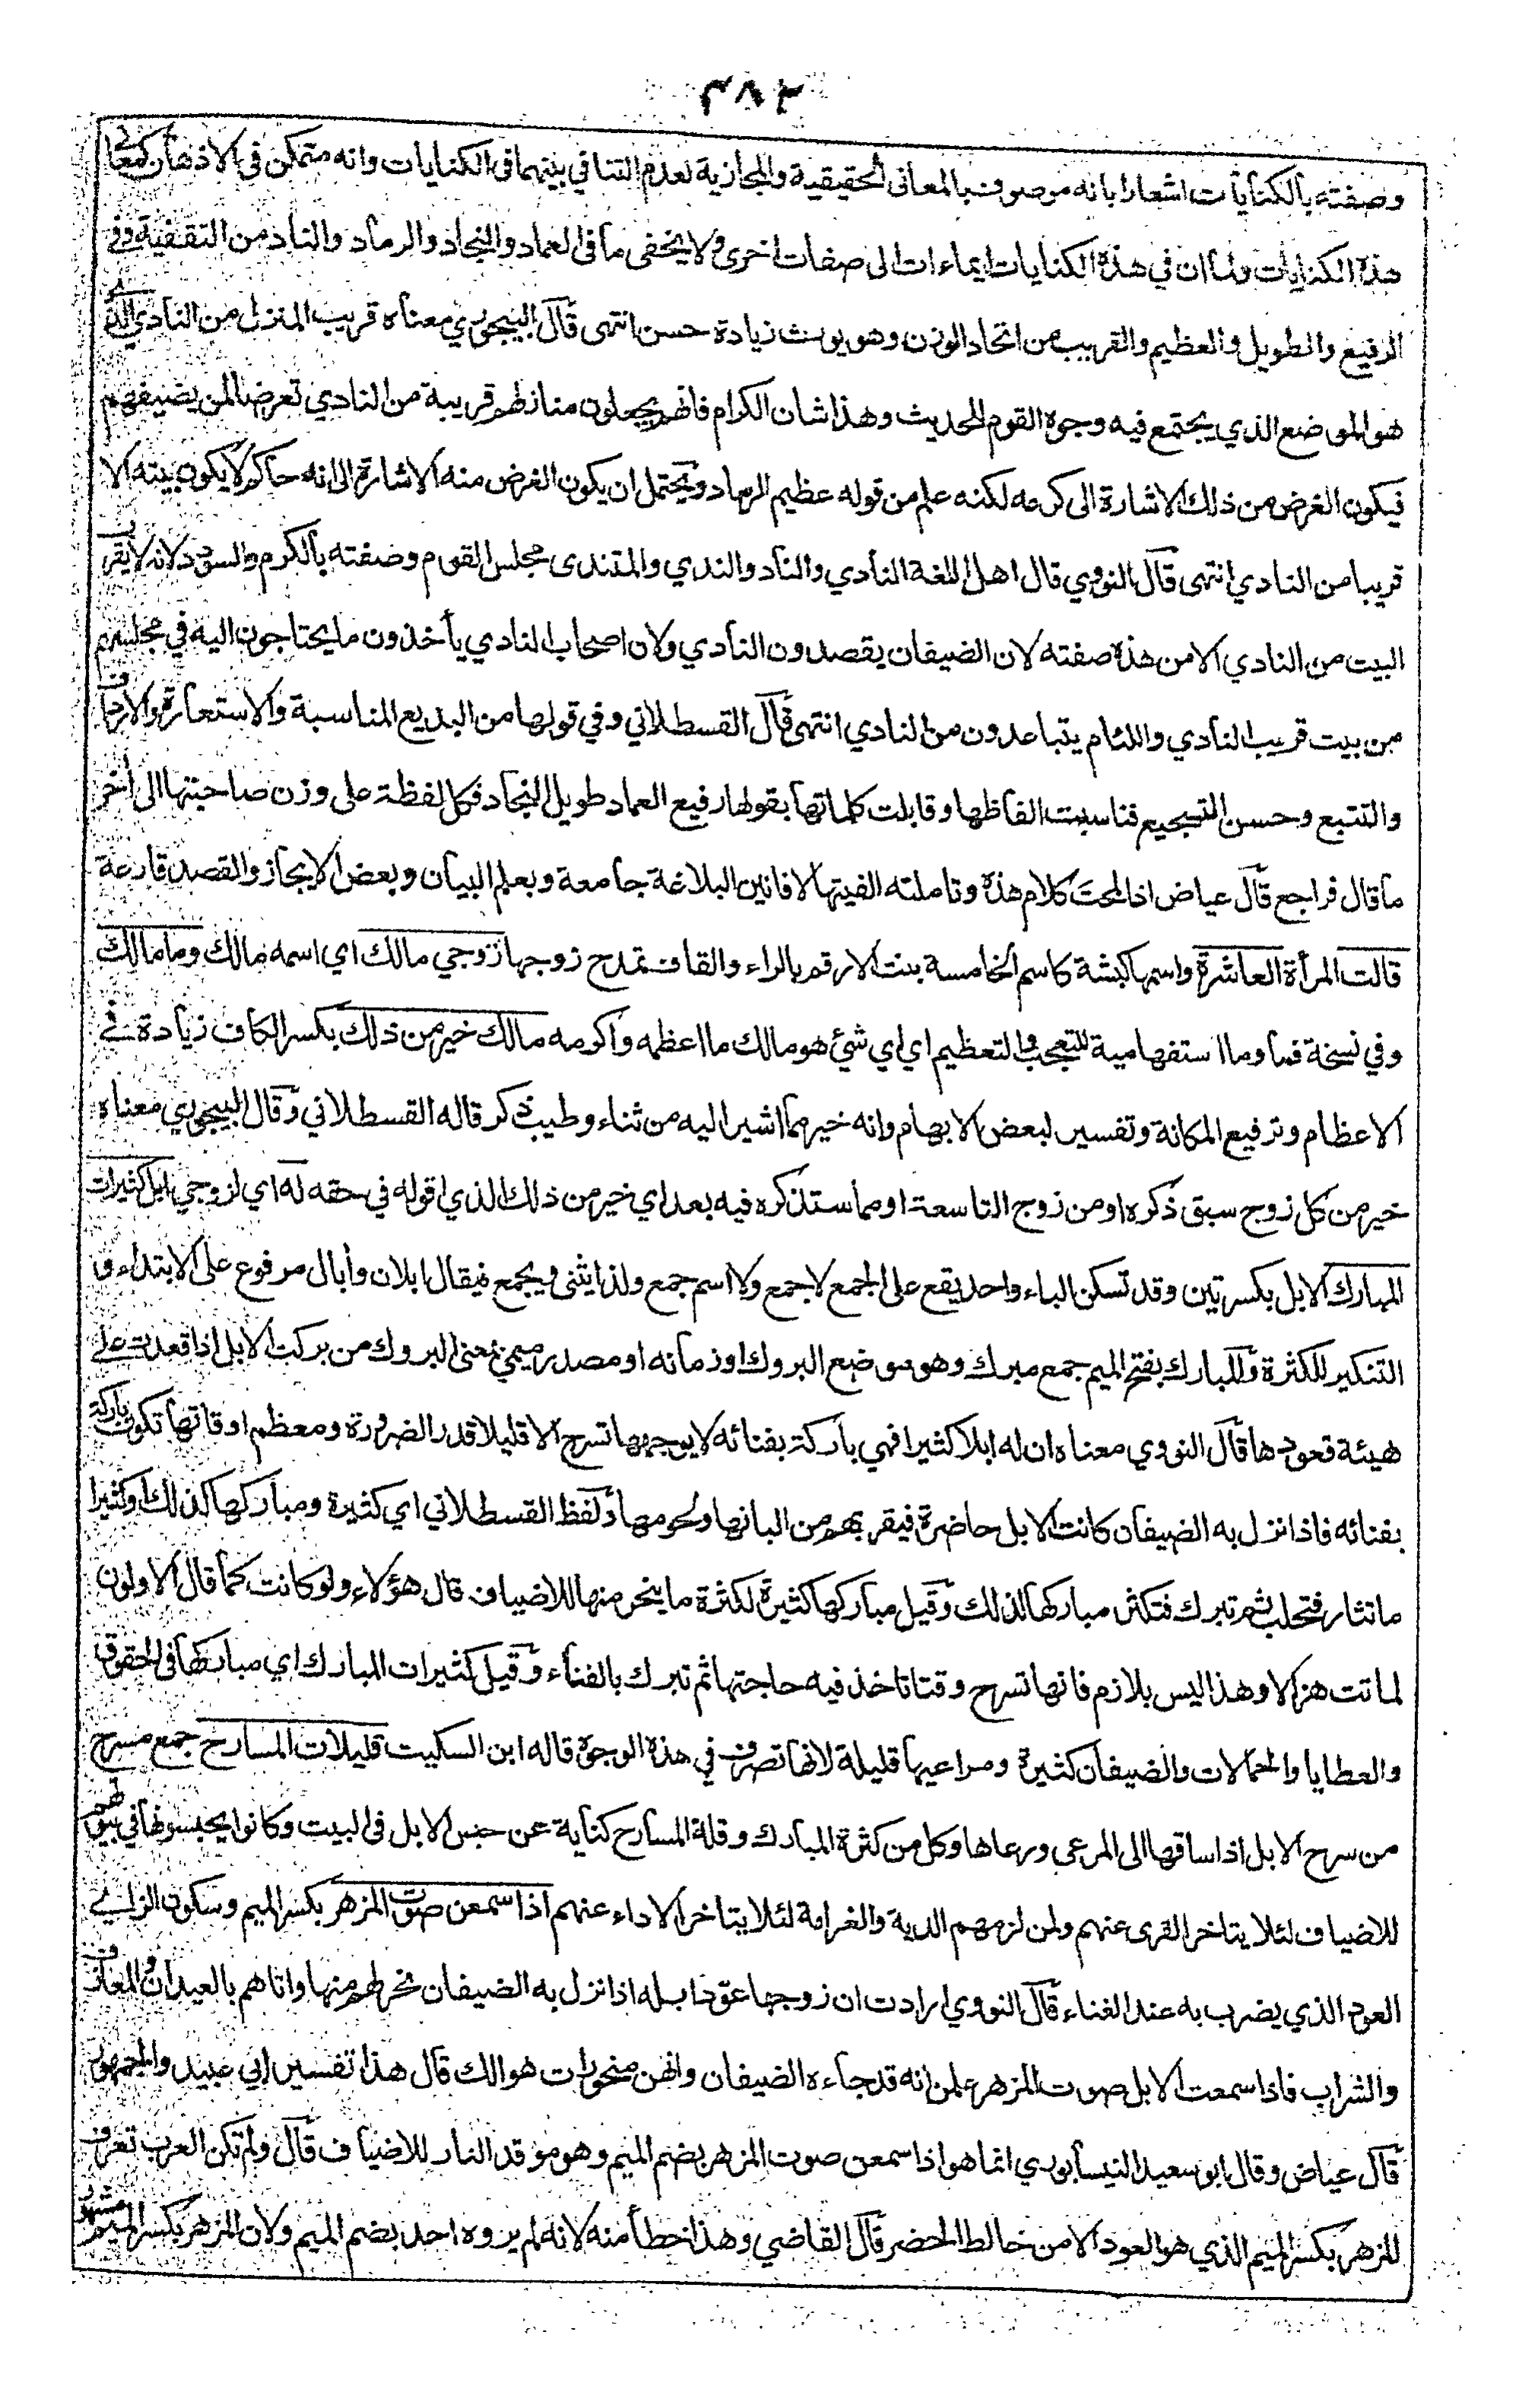 ٣٨٢
وصفته بالكنايات اشعارا بانه موصوف بالمعانى الحقيقية والمجازية لعدم التنافي بينهما فى الكنايات وانه متمكن فى الاذهان كمعانى
هذه الكنايات ولما ان في هذه الكنايات ايماءات الى صفات اخرى ولا يخفى ما فى العماد والنجاد والرماد والناد من التقفية وفى
الرفيع والطويل والعظيم والقريب من اتحاد الوزن وهو يورث زيادة حسن انتهى قال البيجوري معناه قريب المنزل من النادي الذي
هو الموضع الذي يجتمع فيه وجوه القوم للحديث وهذا شان الكرام فانهم يجعلون منازلهم قريبة من النادي تعرضا لمن يضيفهم
فيكون الغرض من ذلك الاشارة الى كرمه لكنه علم من قوله عظيم الرماد ويحتمل ان يكون الغرض منه الاشارة الى انه حاكم لا يكون بيته الا
قريبا من النادي انتهى قال النووي قال اهل اللغة النادي والناد والندي والمتندى مجلس القوم وصفته بالكرم والسودد لانه لا يقرب
البيت من النادي الا من هذه صفته لان الضيفان يقصدون النادي ولان اصحاب النادي يأخذون ما يحتاجون اليه في مجلسهم
من بيت قريب النادي واللئام يتباعدون من النادي انتهى قال القسطلاني وفي قولها من البديع المناسبة والاستعارة والارداف
والتتبع وحسن التسجيع فناسبت الفاظها وقابلت كلماتها بقولها رفيع العماد طويل النجاد فكل لفظة على وزن صاحبتها الى اخر
ما قال فراجع قال عياض اذا لمحت كلام هذه وتاملته الفيتها لافانين البلاغة جامعة وبعلم البيان وبعض الايجاز والقصد قارعة
قالت المرأة العاشرة واسمها كبشة كاسم الخامسة بنت الارقم بالراء والقاف تمدح زوجها زوجي مالك اي اسمه مالك وما مالك
وفي نسخة فما وما استفهامية للتعجب والتعظيم اي اي شئ هو مالك ما اعظمه واكرمه مالك خير من ذلك بكسر الكاف زيادة في
الاعظام وترفيع المكانة وتفسير لبعض الابهام وانه خير مما اشير اليه من ثناء وطيب ذكر قاله القسطلاني وقال البيجوري معناه
خير من كل زوج سبق ذكره او من زوج التاسعة او مما ستذكره فيه بعد اي خير من ذلك الذي اقوله في حقه له اي لزوجي ابل كثيرات
المبارك الابل بكسرتين وقد تسكن الباء واحد يقع على الجمع لا جمع ولا اسم جمع ولذا يثنى ويجمع فيقال ابلان وأبال مرفوع على الابتداء و
التنكير للكثرة والمبارك بفتح الميم جمع مبرك وهو موضع البروك او زمانه او مصدر ميمي بمعنى البروك من بركت الابل اذا قعدت على
هيئة قعودها قال النووي معناه ان له ابلا كثيرا فهي باركة بفنائه لا يوجهها تسرح الا قليلا قدر الضرورة ومعظم اوقاتها تكون باركة
بفنائه فاذا نزل به الضيفان كانت الابل حاضرة فيقريهم من البانها ولحومها ولفظ القسطلاني اي كثيرة ومباركها كذلك او كثيرا
ما تثار فتحلب ثم تبرك فتكثر مباركها لذلك وقيل مباركها كثيرة لكثرة ما ينحر منها للاضياف قال هؤلاء ولو كانت كما قال الاولون
لماتت هزالا وهذا ليس بلازم فانها تسرح وقتا تاخذ فيه حاجتها ثم تبرك بالفناء وقيل كثيرات المبارك اي مباركها فى الحقوق
والعطايا والحمالات والضيفان كثيرة ومراعيها قليلة لانها تصرف في هذه الوجوه قاله ابن السكيت قليلات المسارح جمع مسرح
من سرح الابل اذا ساقها الى المرعى ورعاها وكل من كثرة المبارك وقلة المسارح كناية عن حبس الابل فى البيت وكانوا يحبسونها في بيوتهم
للاضياف لئلا يتاخر القرى عنهم ولمن لزمهم الدية والغرامة لئلا يتاخر الاداء عنهم اذا سمعن صوت المزهر بكسر الميم وسكون الزاي
العود الذي يضرب به عند الغناء قال النووي ارادت ان زوجها عود ابله اذا نزل به الضيفان نحر لهم منها واتاهم بالعيدان والمعازف
والشراب فاذا سمعت الابل صوت المزهر علمن انه قد جاءه الضيفان وانهن منحورات هوالك قال هذا تفسير ابي عبيد والجمهور
قال عياض وقال ابو سعيد النيسابوري انما هو اذا سمعن صوت المزهر بضم الميم وهو موقد النار للاضياف قال ولم تكن العرب تعرف
المزهر بكسر الميم الذي هو العود الا من خالط الحضر قال القاضي وهذا خطأ منه لانه لم يروه احد بضم الميم ولان المزهر بكسر الميم مشهور